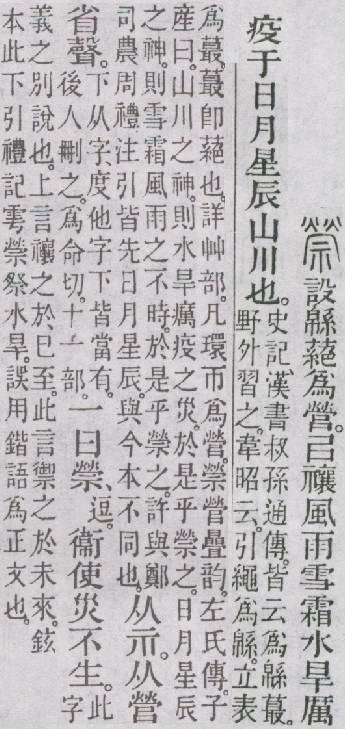 禜 設緜蕝爲營。㠯禳風雨雪霜水旱厲
疫于日月星辰山川也。
史記漢書叔孫通傳。皆云爲緜蕞。
野外習之。韋昭云。引繩爲緜。立表
爲蕞。蕞卽蕝也。詳艸部。凡環帀爲營。禜營疊韵。左氏傳。子
產曰。山川之神。則水旱癘疫之災。於是乎禜之。日月星辰
之神。則雪霜風雨之不時。於是乎禜之。許與鄭
司農周禮注引皆先日月星辰。與今本不同也。
从示。从營
省聲。
下从字。度他字下皆當有。
後人刪之。爲命切。十一部。
一曰禜、
逗。
衞使災不生。
此
字
義之別說也。上言禳之於巳至。此言禦之於未來。鉉
本此下引禮記雩禜祭水旱。誤用鍇語爲正文也。